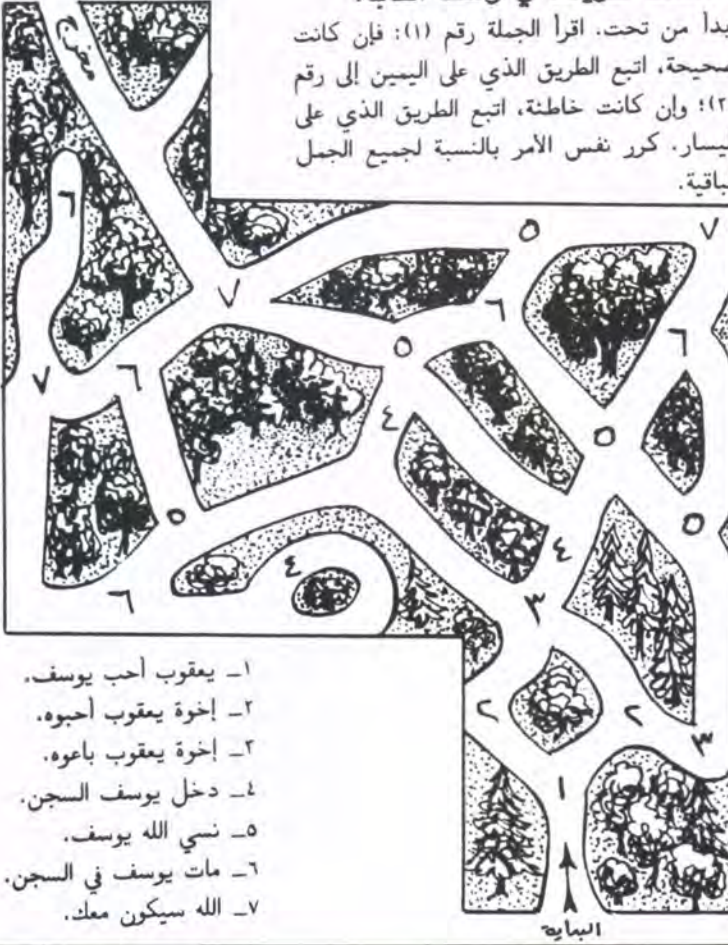 بدأ من تحت. اقرأ الجملة رقم (١): فإن كانت
صحيحة، اتبع الطريق الذي على اليمين إلى رقم
٢)؛ وإن كانت خاطئة، اتبع الطريق الذي على
يسار. كرر نفس الأمر بالنسبة لجميع الجمل
باقية.
مخرج
٦
٧
٥
٧
٦
٦
٥
٧
٦
٤
٥
٥
٥
٤
٦
٤
٣
٢
٢
٣
١
البداية
١ـ يعقوب أحب يوسف.
٢ـ إخوة يعقوب أحبوه.
٣ـ إخوة يعقوب باعوه.
٤ـ دخل يوسف السجن.
٥ـ نسي الله يوسف.
٦ـ مات يوسف في السجن.
٧ـ الله سيكون معك.